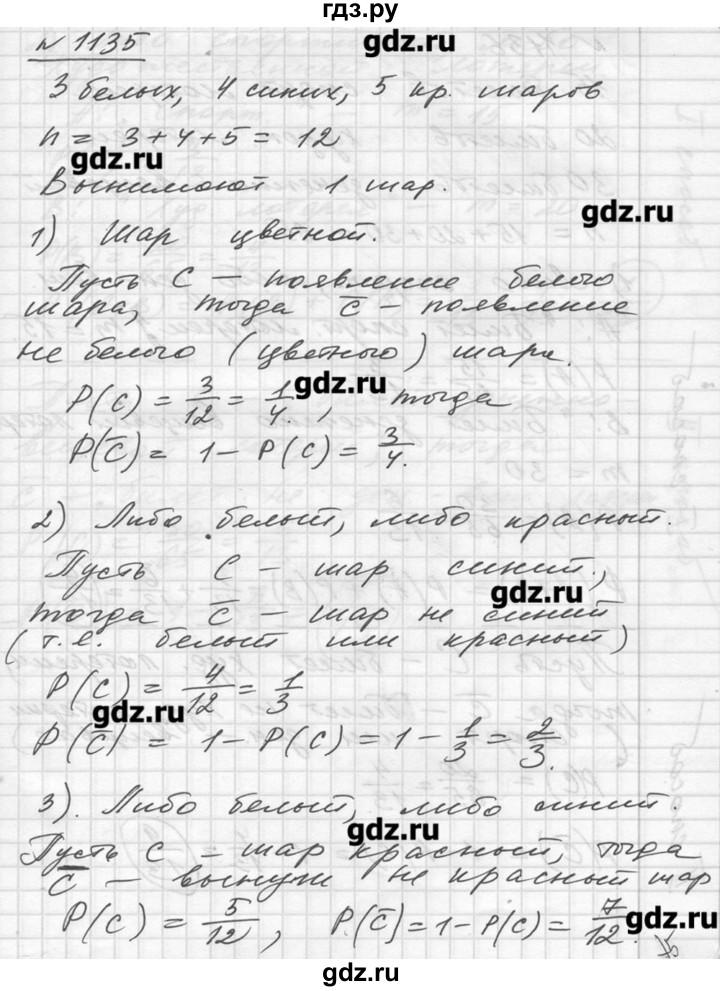 гдз.ру
№ 1135
gdz.ru
3 белых, 4 синих, 5 кр. шаров
n = 3+4+5 = 12
gdz.ru
Вынимают 1 шар.
gdz.ru
1) Шар цветной.
Пусть C – появление белого
шара, тогда C̅ – появление
не белого (цветного) шара.
P(C) = 3/12 = 1/4, тогда
gdz.ru
P(C̅) = 1 – P(C) = 3/4.
2) Либо белый, либо красный.
Пусть C – шар синий,
gdz.ru
тогда C̅ – шар не синий
(т.е. белый или красный)
P(C) = 4/12 = 1/3
gdz.ru
P(C̅) = 1 – P(C) = 1 – 1/3 = 2/3.
3). Либо белый, либо синий.
gdz.ru
Пусть C – шар красный, тогда
C̅ – вынут не красный шар
P(C) = 5/12, P[C̅] = 1 – P(C) = 7/12.
gdz.ru
gdz.ru
gdz.ru